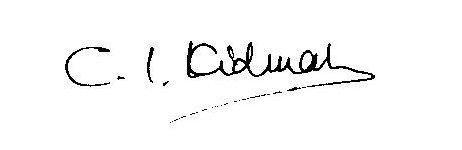 C. I. Kidman